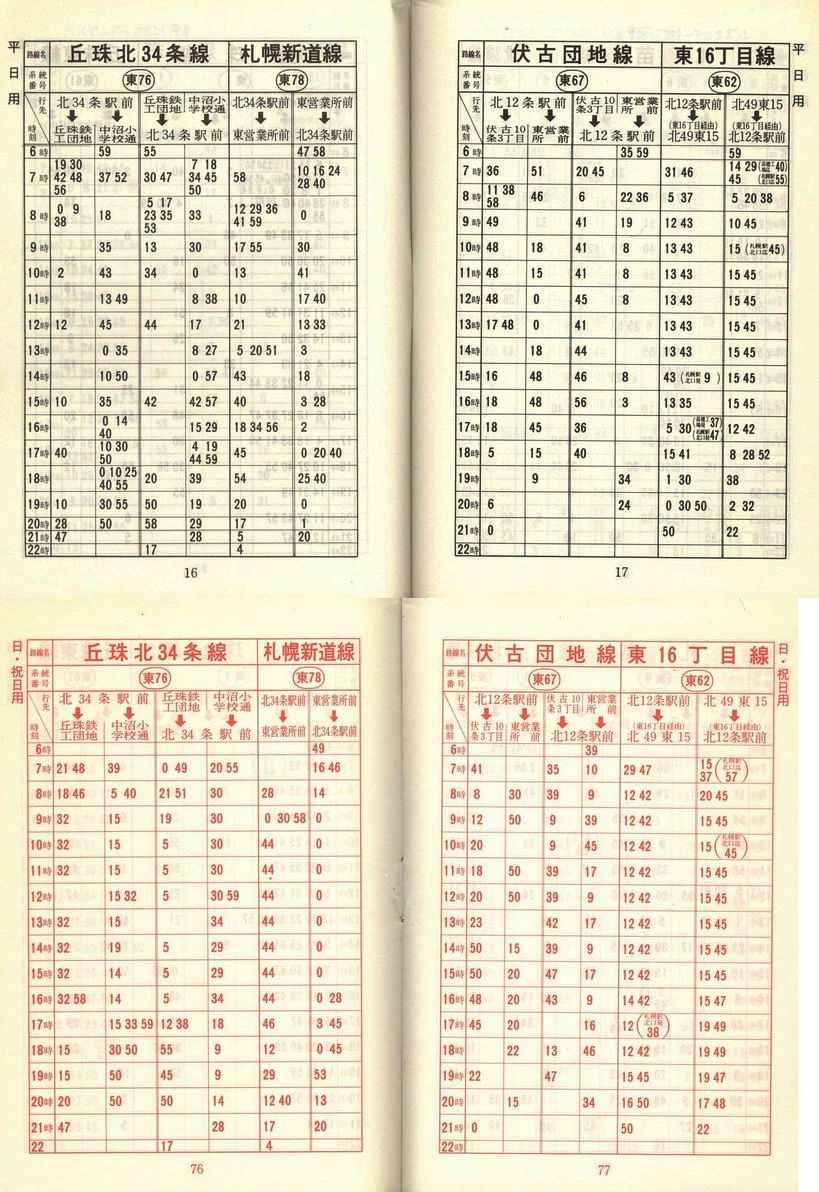 平日用
路線名 丘珠北34条線 札幌新道線
系統番号 東76 東78
行先 時刻 北34条駅前 丘珠鉄工団地 中沼小学校通 北34条駅前 東営業所前
丘珠鉄工団地 中沼小学校通 北34条駅前 東営業所前 北34条駅前
6時 59 55 47 58
7時 19 30 42 48 56 37 52 30 47 7 18 34 45 50 58 10 16 24 28 40
8時 0 9 38 18 5 17 23 35 53 33 12 29 36 41 59 0 55
9時 35 13 30 17 55 30
10時 2 43 34 0 13 41
11時 13 49 8 38 10 17 40
12時 12 45 44 17 21 13 33
13時 0 35 8 27 5 20 51 3
14時 10 50 0 57 43 18
15時 10 35 42 42 57 40 3 28
16時 0 14 40 15 29 18 34 56 2
17時 40 10 30 50 4 19 44 59 45 0 20 40
18時 0 10 25 40 55 20 39 54 25 40
19時 10 30 55 50 19 20 0
20時 28 50 58 29 17 1
21時 47 28 5 20
22時 17 4
16
平日用
路線名 伏古団地線 東16丁目線
系統番号 東67 東62
行先 時刻 北12条駅前 伏古10条3丁目 東営業所前 北12条駅前 北49東15
伏古10条3丁目 東営業所前 北12条駅前 (東16丁目経由) 北49東15 (東16丁目経由) 北12条駅前
6時 35 59 59
7時 36 51 20 45 31 46 14 29 40) 45 (札幌駅北口迄55)
8時 11 38 58 46 6 22 36 5 37 5 20 38
9時 49 41 19 12 43 10 45
10時 48 18 41 8 13 43 15 (札幌駅北口迄45)
11時 48 15 41 8 13 43 15 45
12時 48 0 45 8 13 43 15 45
13時 17 48 0 41 13 43 15 45
14時 18 44 13 43 15 45
15時 16 48 46 8 43 (札幌駅北口発 9 ) 15 45
16時 18 48 56 3 13 35 15 45
17時 18 45 36 5 30 37) (札幌駅北口発47) 12 42
18時 5 15 40 15 41 8 28 52
19時 9 34 1 30 38
20時 6 24 0 30 50 2 32
21時 0 50 22
22時
17
日・祝日用
路線名 丘珠北34条線 札幌新道線
系統番号 東76 東78
行先 時刻 北34条駅前 丘珠鉄工団地 中沼小学校通 北34条駅前 東営業所前
丘珠鉄工団地 中沼小学校通 北34条駅前 東営業所前 北34条駅前
6時 49
7時 21 48 39 0 49 20 55 16 46
8時 18 46 5 40 21 51 30 28 14
9時 32 15 19 30 0 30 58 0
10時 32 15 5 30 44 0
11時 32 15 5 30 44 0
12時 15 32 5 30 59 44 0
13時 32 15 34 44 0
14時 32 19 5 29 44 0
15時 32 14 5 29 44 0
16時 32 58 14 5 34 44 0 28
17時 15 33 59 12 38 18 46 3 45
18時 15 30 50 55 9 12 0 45
19時 15 50 45 9 29 53
20時 20 50 50 14 12 40 13
21時 47 28 17 20
22 17 4
76
日・祝日用
路線名 伏古団地線 東16丁目線
系統番号 東67 東62
行先 時刻 北12条駅前 伏古10条3丁目 東営業所前 北12条駅前 北49東15
伏古10条3丁目 東営業所前 北12条駅前 (東16丁目経由) 北49東15 (東16丁目経由) 北12条駅前
6時 39
7時 41 35 10 29 47 15 37 (札幌駅北口迄 57)
8時 8 30 39 9 12 42 20 45
9時 12 50 9 39 12 42 15 45
10時 20 9 45 12 42 15 (札幌駅北口迄 45)
11時 18 50 39 17 12 42 15 45
12時 20 50 39 9 12 42 15 45
13時 23 42 17 12 42 15 45
14時 50 15 39 9 12 42 15 45
15時 50 20 47 17 12 42 15 45
16時 48 20 43 9 14 42 15 47
17時 45 20 16 12 (札幌駅北口発 38) 19 49
18時 22 13 46 12 42 19 49
19時 22 47 15 45 19 47
20時 15 34 16 50 17 48
21時 0 50 22
22時
77